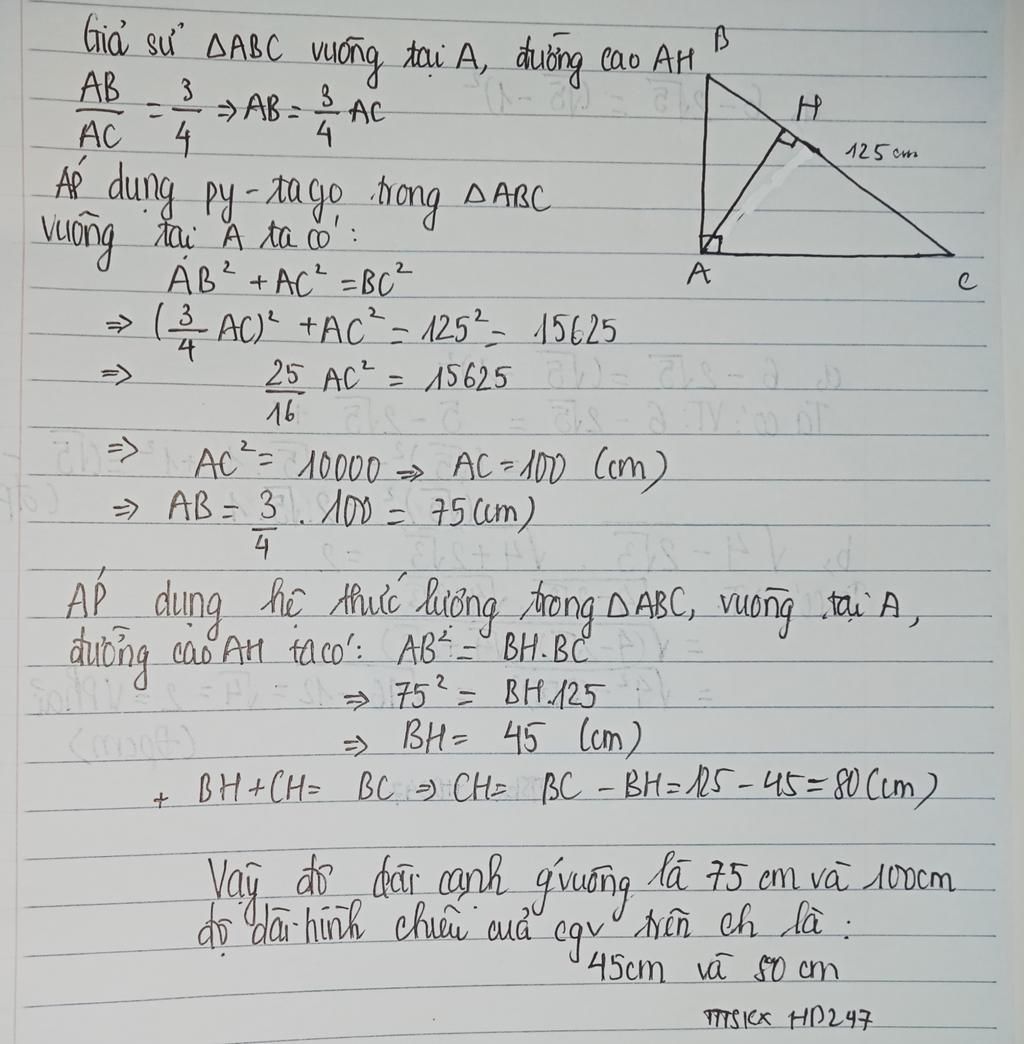 Giả sử ΔABC vuông tại A, đường cao AH
AB/AC = 3/4 => AB = 3/4 AC
B
H
125 cm
A
C
ÁP dụng py-tago trong ΔABC
vuông tại A ta có:
AB² + AC² = BC²
=> (3/4 AC)² + AC² = 125² = 15625
=> 25/16 AC² = 15625
=> AC² = 10000 => AC = 100 (cm)
=> AB = 3/4 . 100 = 75 (cm)
ÁP dụng hệ thức lượng trong ΔABC, vuông tại A,
đường cao AH ta có: AB² = BH.BC
=> 75² = BH.125
=> BH = 45 (cm)
+ BH + CH = BC => CH = BC - BH = 125 - 45 = 80 (cm)
Vậy độ dài cạnh g'vuông là 75 cm và 100cm
độ dài hình chiếu của cgv trên ch là:
45cm và 80 cm
HD247